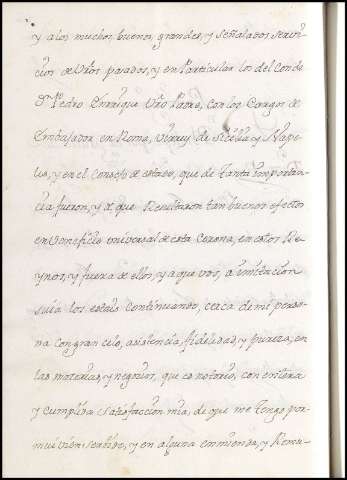 y alos muchos buenos, grandes, y señalados servi-
cios de vrôs pasados, y en Particular los del Conde
Dn. Pedro Enrriquez vrô Padre, en los Cargos de
Embajador en Roma, Virrey de Sicilia y Napo-
les, y en el Consejo de estado, que de tanta importan-
cia fueron, y de que Resultaron tan buenos efectos
en veneficio universal de esta Corona, en estos Re-
ynos, y fuera de ellos, y a que vos, a imitacion
suia los estais Continuando, cerca de mi perso-
na con gran celo, asistencia, fidelidad, y pureza, en
las materias, y negocios, que es notorio, con entera
y cumplida satisfaccion mia, de que me tengo por
mui vien servido, y en alguna enmienda, y Remu-